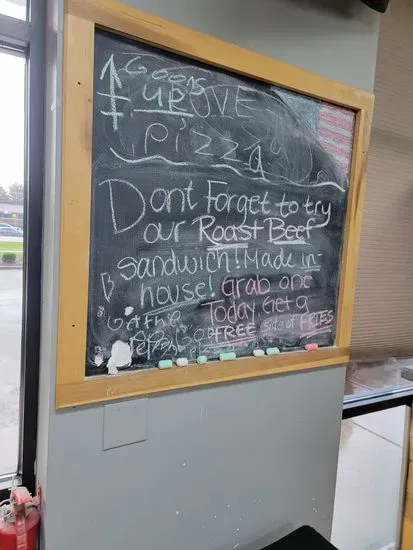 Goons
UP OVE
Pizza
Dont Forget to try
our Roast Beef
sandwich! Made in-
house! Grab one
Today Get a
FREE side of FRIES